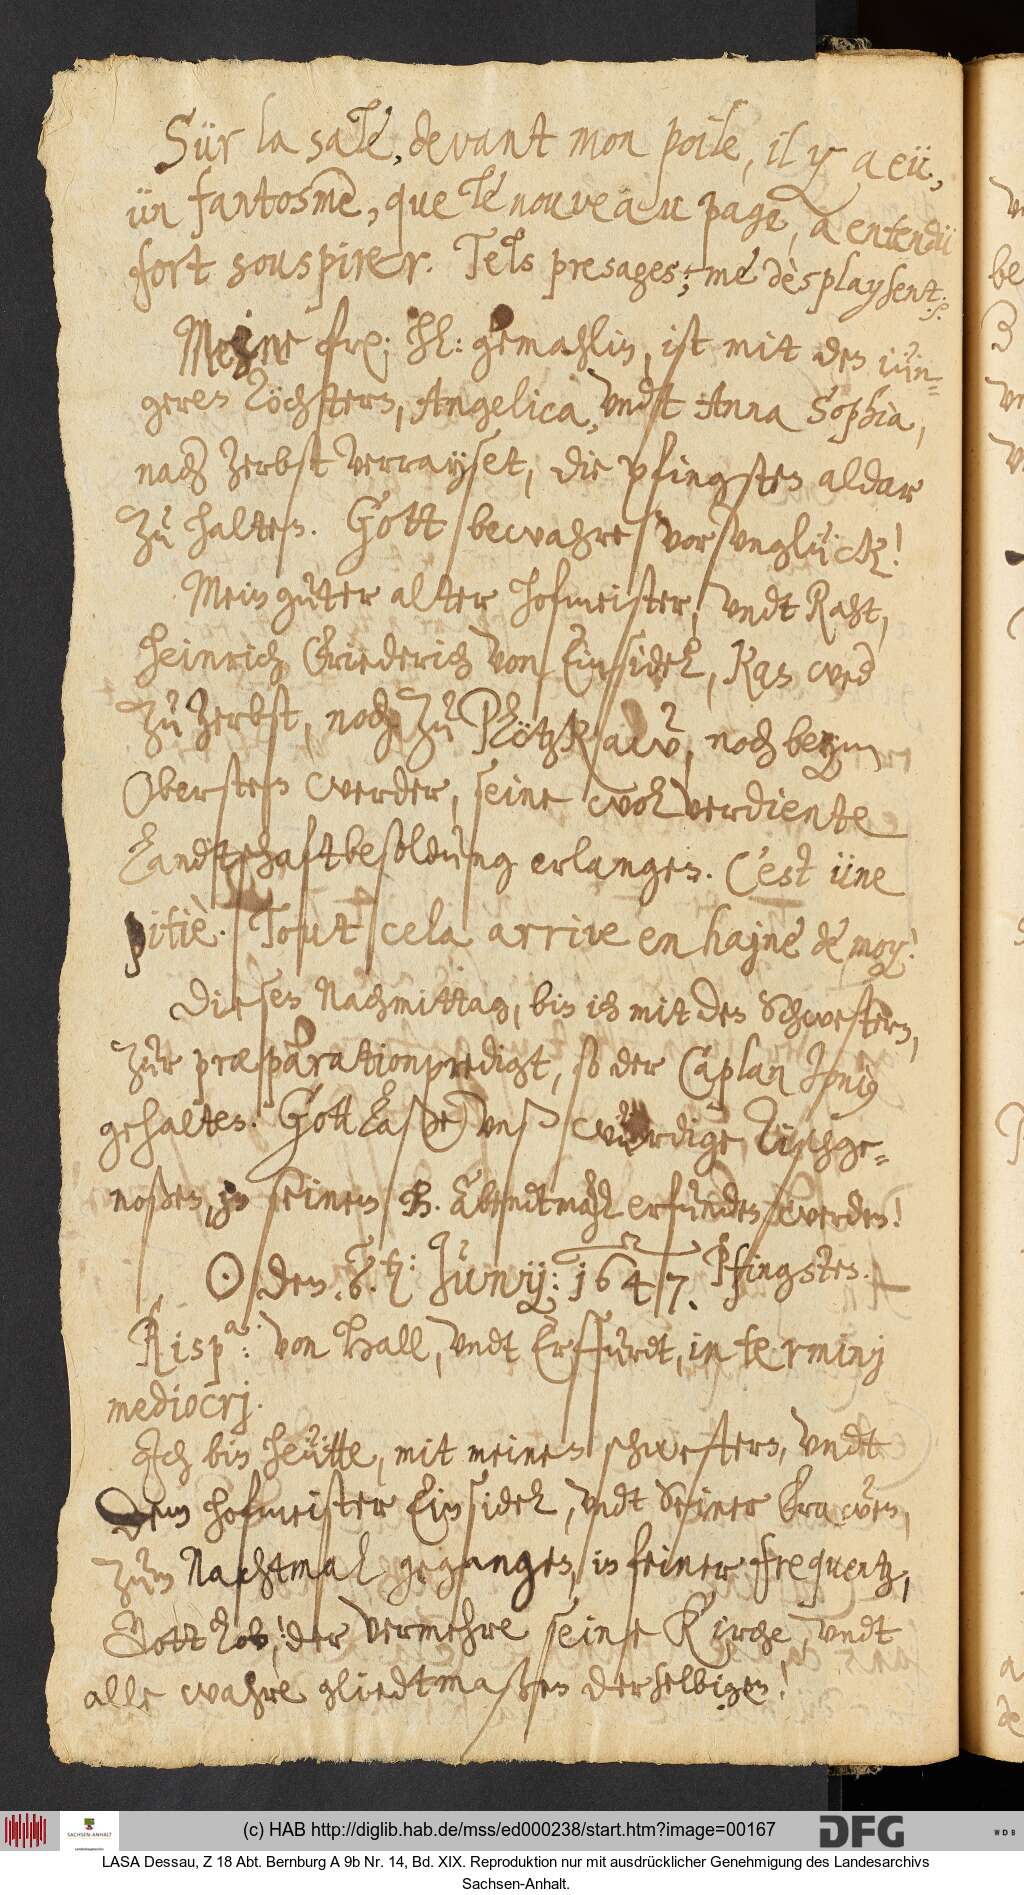 Sür la sale, devant mon poile, il y a eü,
ün fantosme, que le nouveau page, a entendü
fort souspirer. Tels presages; me dèsplaysent. p.
Meine fre; hl: gemahlin, ist mit den iün-
geren Töchtern, Angelica, vndt Anna Sophia,
nach Zerbst verrayset, die pfingsten aldar
zu halten. Gott bewahre vor vnglück!
Mein guter alter hofmeister, vndt Raht,
Heinrich Friederich von Einsidel, kan wed
zu Zerbst, noch zu Plötzkaw, noch beym
Obersten Werder, seine wol verdiente
Landtschaftbesoldung erlangen. C'est üne
pitiè. Tout cela arrive en hajne de moy!
Diesen Nachmittag, bin ich mit den Schwestern,
zur præparationpredigt, so der Caplan Jonius
gehalten. Gott laße vnß würdige Tischge-
noßen, in seinem h. Abendtmahl erfunden werden!
☉ den 6. t{en}: Junij: 1647. Pfingsten.
Risp.a: von Hall, vndt Erffurdt, in terminj
mediocrj.
Ich bin heütte, mit meinen schwestern, vndt
dem hofmeister Einsidel, vndt Seiner Frawen,
zum Nachtmal gegangen, in feiner frequentz,
Gott lob! der vermehre seine Kirche, vndt
alle wahre gliedtmaßen derselbigen!
(c) HAB http://diglib.hab.de/mss/ed000238/start.htm?image=00167
SACHSEN-ANHALT
DFG
WDB
LASA Dessau, Z 18 Abt. Bernburg A 9b Nr. 14, Bd. XIX. Reproduktion nur mit ausdrücklicher Genehmigung des Landesarchivs
Sachsen-Anhalt.